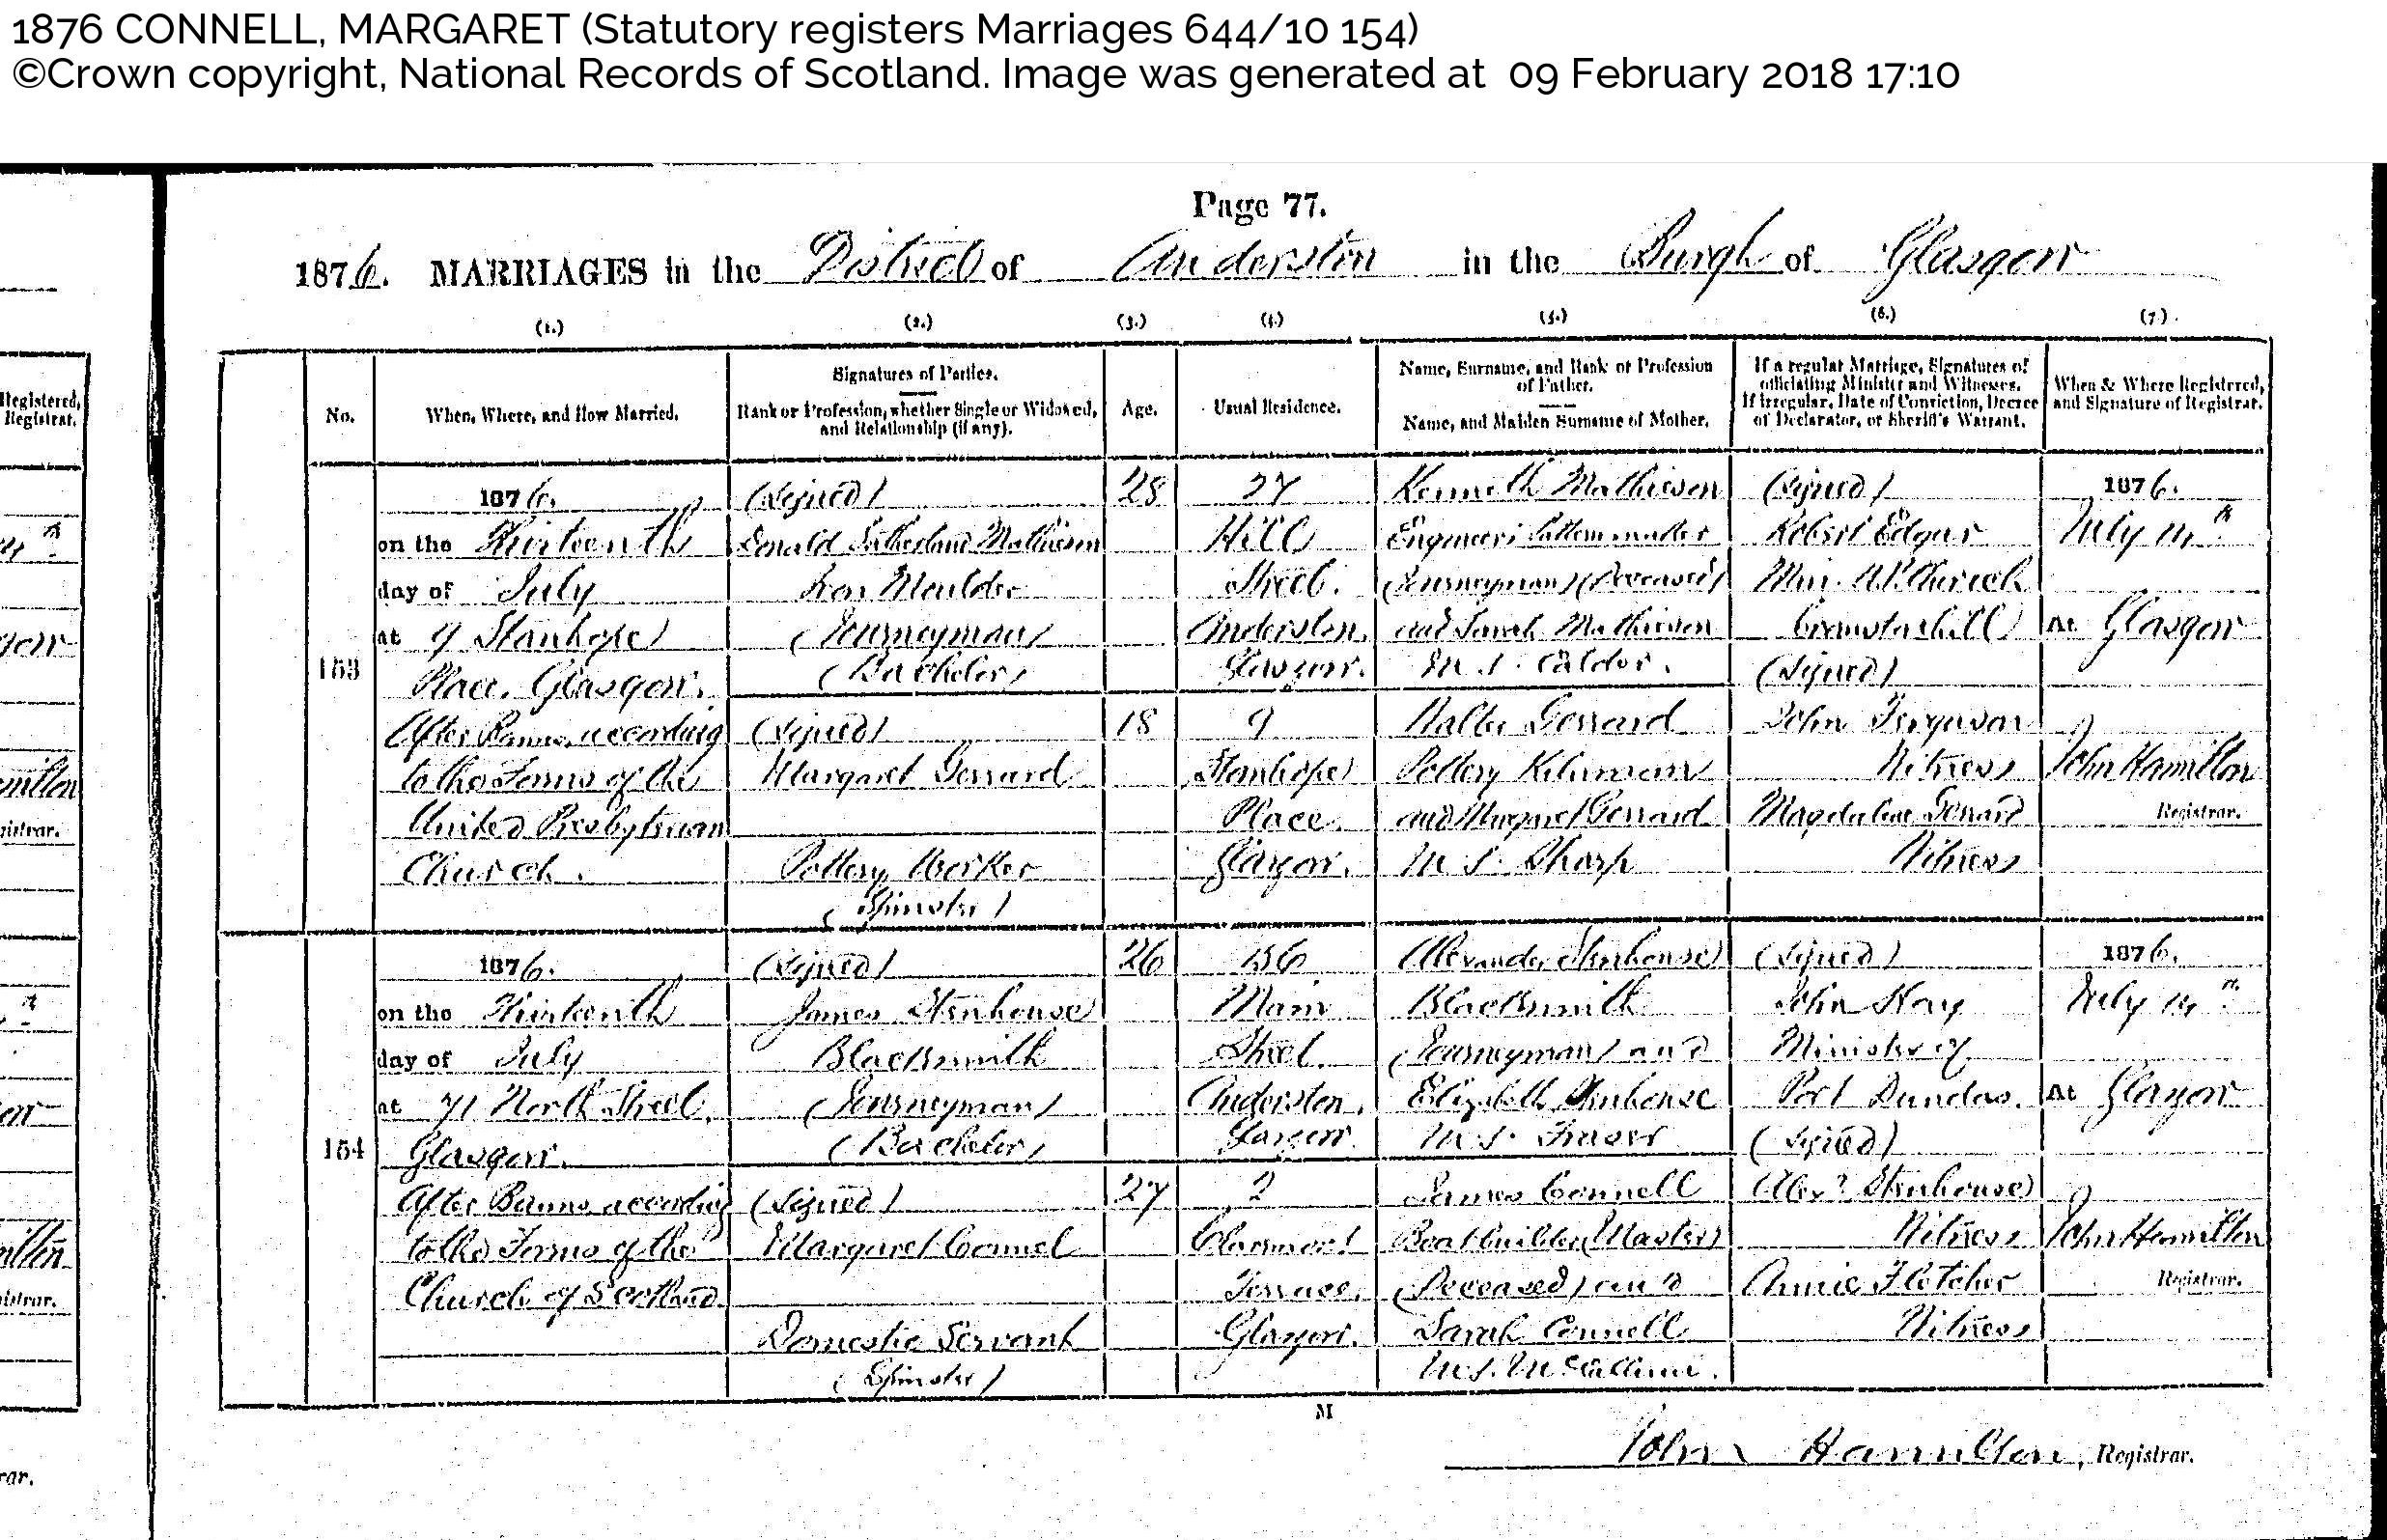 1876 CONNELL, MARGARET (Statutory registers Marriages 644/10 154)
©Crown copyright, National Records of Scotland. Image was generated at 09 February 2018 17:10
Page 77.
1876. MARRIAGES in the District of Anderston in the Burgh of Glasgow
(1.) (2.) (3.) (4.) (5.) (6.) (7.)
No.
When, Where, and How Married.
Signatures of Parties.
Rank or Profession, whether Single or Widowed,
and Relationship (if any).
Age.
Usual Residence.
Name, Surname, and Rank or Profession
of Father.
Name, and Maiden Surname of Mother.
If a regular Marriage, Signatures of
officiating Minister and Witnesses.
If irregular, Date of Conviction, Decree
of Declarator, or Sheriff's Warrant.
When & Where Registered,
and Signature of Registrar.
Registered,
Registrar.
153
1876.
on the Thirteenth
day of July
at 9 Stanhope
Place, Glasgow.
After Banns, according
to the Forms of the
United Presbyterian
Church.
(signed)
Donald Sutherland Mathieson
Iron Moulder
(Journeyman)
(Bachelor)
(signed)
Margaret Gerrard
Pottery Worker
(Spinster)
28
18
27
Hill
Street.
Anderston,
Glasgow.
9
Stanhope
Place.
Glasgow.
Kenneth Mathieson
Engineer's Patternmaker
(Journeyman) (Deceased)
and Sarah Mathieson
M.S. Calder.
Gerrard
Pottery Kilnman
and Margaret Gerrard
M.S. Sharp
(signed)
Robert Edgar
Min. U.P. Church
(signed)
John Ferguson
Witness
Magdalene Gerrard
Witness
1876.
July 14th
At Glasgow
John Hamilton
Registrar.
154
1876.
on the Thirteenth
day of July
at 71 North Street,
Glasgow.
After Banns, according
to the Forms of the
Church of Scotland.
(signed)
James Stenhouse
Blacksmith
(Journeyman)
(Bachelor)
(signed)
Margaret Connel
Domestic Servant
(Spinster)
26
27
156
Main
Street
Anderston,
Glasgow.
2
Claremont
Terrace,
Glasgow.
Alexander Stenhouse
Blacksmith
(Journeyman) and
Elizabeth Stenhouse
M.S. Fraser
James Connell
Boatbuilder (Master)
(Deceased) and
Sarah Connell
M.S. McCallum.
(signed)
John Hay
Minister of
Port Dundas.
(signed)
Alexr Stenhouse
Witness
Annie Fletcher
Witness
1876.
July 14th
At Glasgow
John Hamilton
Registrar.
M
John Hamilton, Registrar.